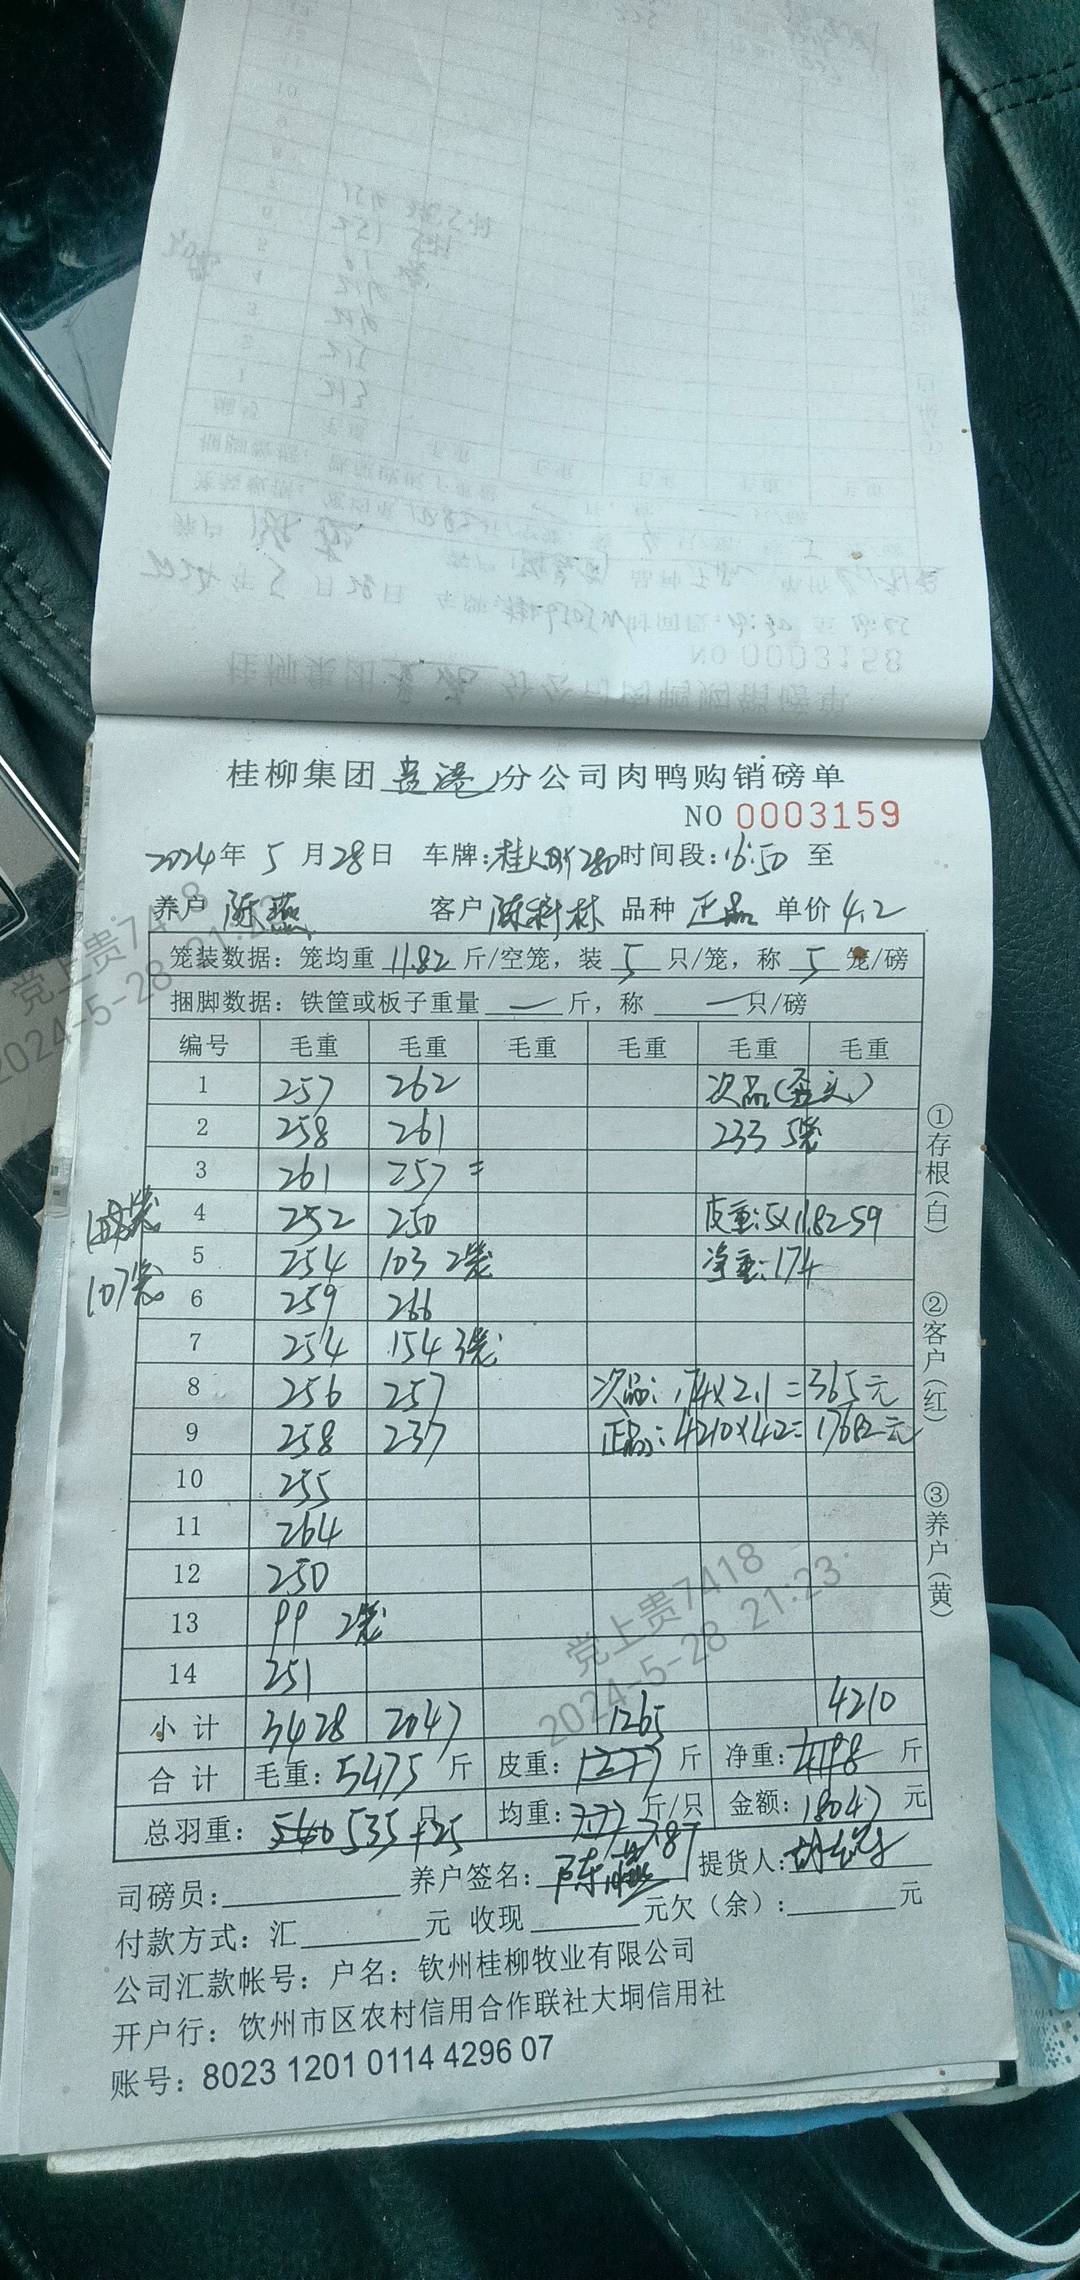 桂柳集团贵港分公司肉鸭购销磅单
NO 0003159
2024年 5 月28日 车牌:桂 时间段:16:50 至
养户 陈燕 客户 陈科林 品种 正品 单价 4.2
笼装数据:笼均重 11.82 斤/空笼,装 5 只/笼,称 5 笼/磅
捆脚数据:铁筐或板子重量 — 斤,称 — 只/磅
编号 毛重 毛重 毛重 毛重 毛重 毛重
1 257 262 次品
2 258 261 233 5笼
3 261 257 =
4 252 250 皮重:5×11.82 59
5 254 103 2笼 净重:174
107笼
6 259 266
7 254 154 3笼
8 256 257 次品:174×2.1=365元
9 258 237 正品:4210×4.2=17682元
10 255
11 264
12 250
13 99 2笼
14 251
小 计 3428 2047 1265 4210
合 计 毛重:5475 斤 皮重:1277 斤 净重:4198 斤
总羽重: 560 535+25 只 均重: 7.87 斤/只 金额: 18047 元
司磅员: 养户签名:陈燕 提货人:
付款方式:汇 元 收现 元欠(余): 元
公司汇款帐号:户名:钦州桂柳牧业有限公司
开户行:钦州市区农村信用合作联社大垌信用社
账号:8023 1201 0114 4296 07
①存根(白)
②客户(红)
③养户(黄)
党上贵7418
2024-5-28 21:23
党上贵7418
2024-5-28 21:23
NO 0003158